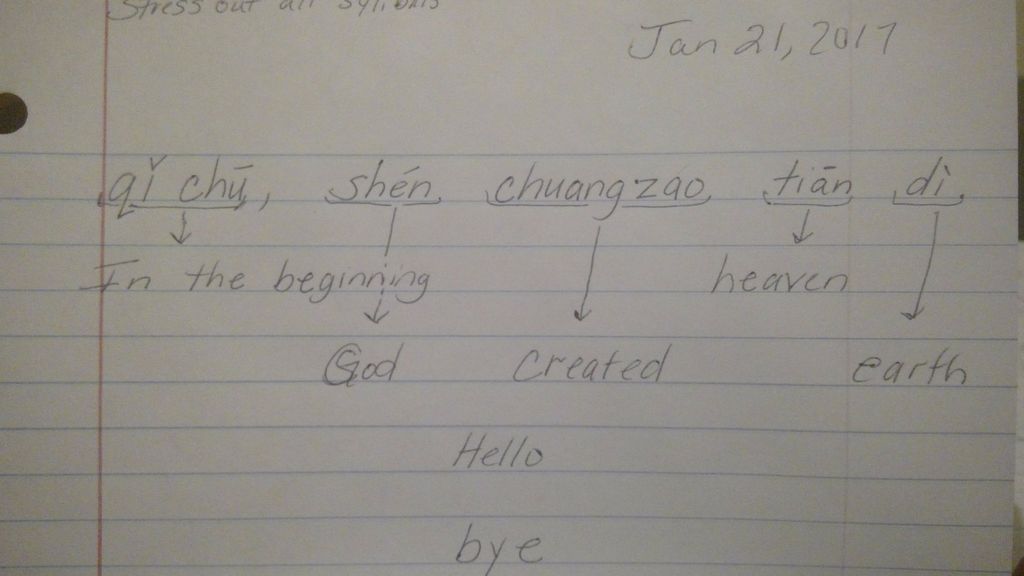 Stress out all sylibuls
Jan 21, 2017
qǐ chū, shén chuangzao tiān dì
In the beginning heaven
God Created earth
Hello
bye